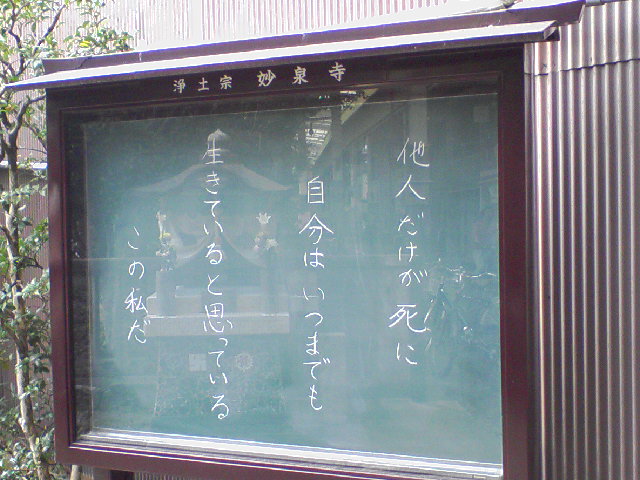 浄土宗 妙泉寺
他人だけが死に
自分はいつまでも
生きていると思っている
この私だ